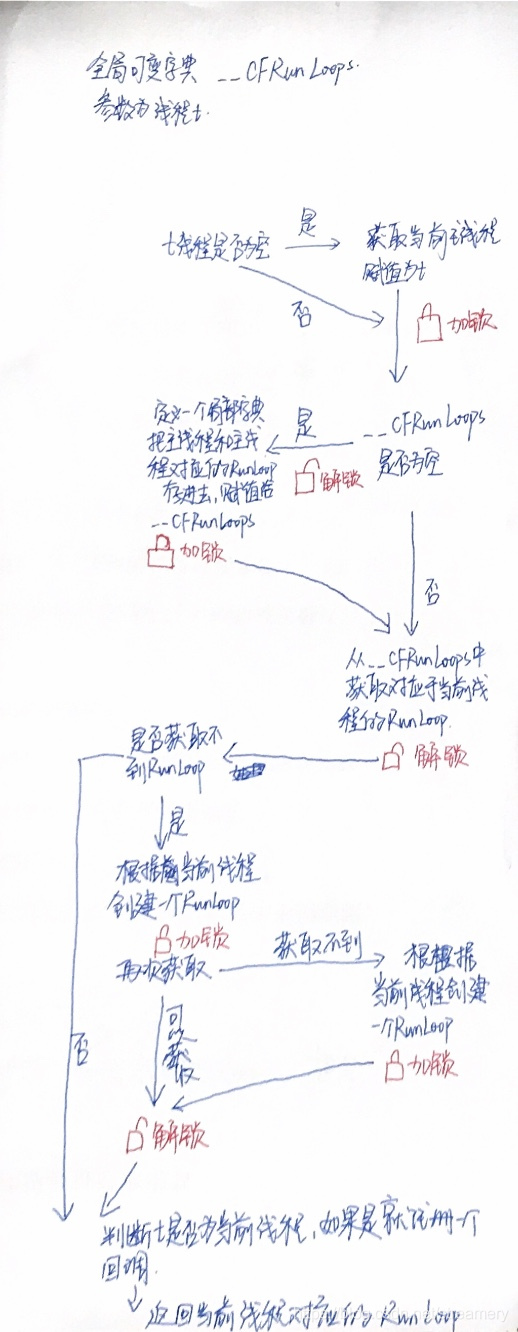 全局可变字典 __CFRunLoops.
参数为线程t.
t线程是否为空
是
获取当前主线程
赋值为t
否
加锁
定义一个局部字典
把主线程和主线
程对应的RunLoop
存进去,赋值给
__CFRunLoops
加锁
是
解锁
__CFRunLoops
是否为空
否
从__CFRunLoops中
获取对应于当前线
程的RunLoop.
解锁
是否获取不
到RunLoop
是
根据当前线程
创建一个RunLoop
加锁
再次获取
获取不到
根据
当前线程创建
一个RunLoop
加锁
可以获取
否
解锁
判断t是否为当前线程,如果是就注册一个
回调.
返回当前线程对应的RunLoop